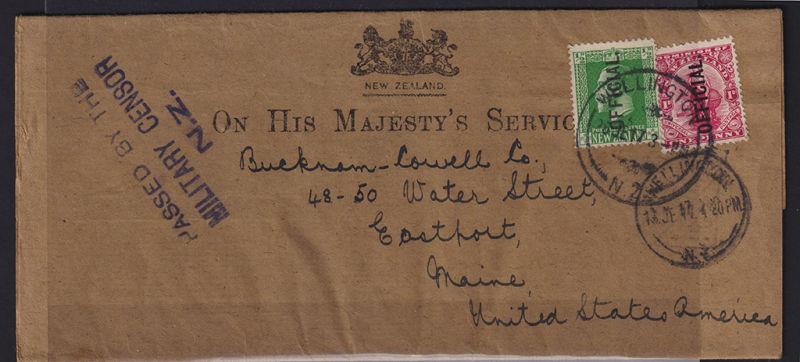 NEW ZEALAND.
ON HIS MAJESTY'S SERVIC
PASSED BY THE
MILITARY CENSOR
N.Z.
Bucknam-Cowell Co.,
48-50 Water Street,
Eastport,
Maine,
United States America
OFFICIAL.
OFFICIAL.
DOMINION OF
PENNY
WELLINGTON
N.Z
WELLINGTON
13 JE 17 4 20 PM
N.Z